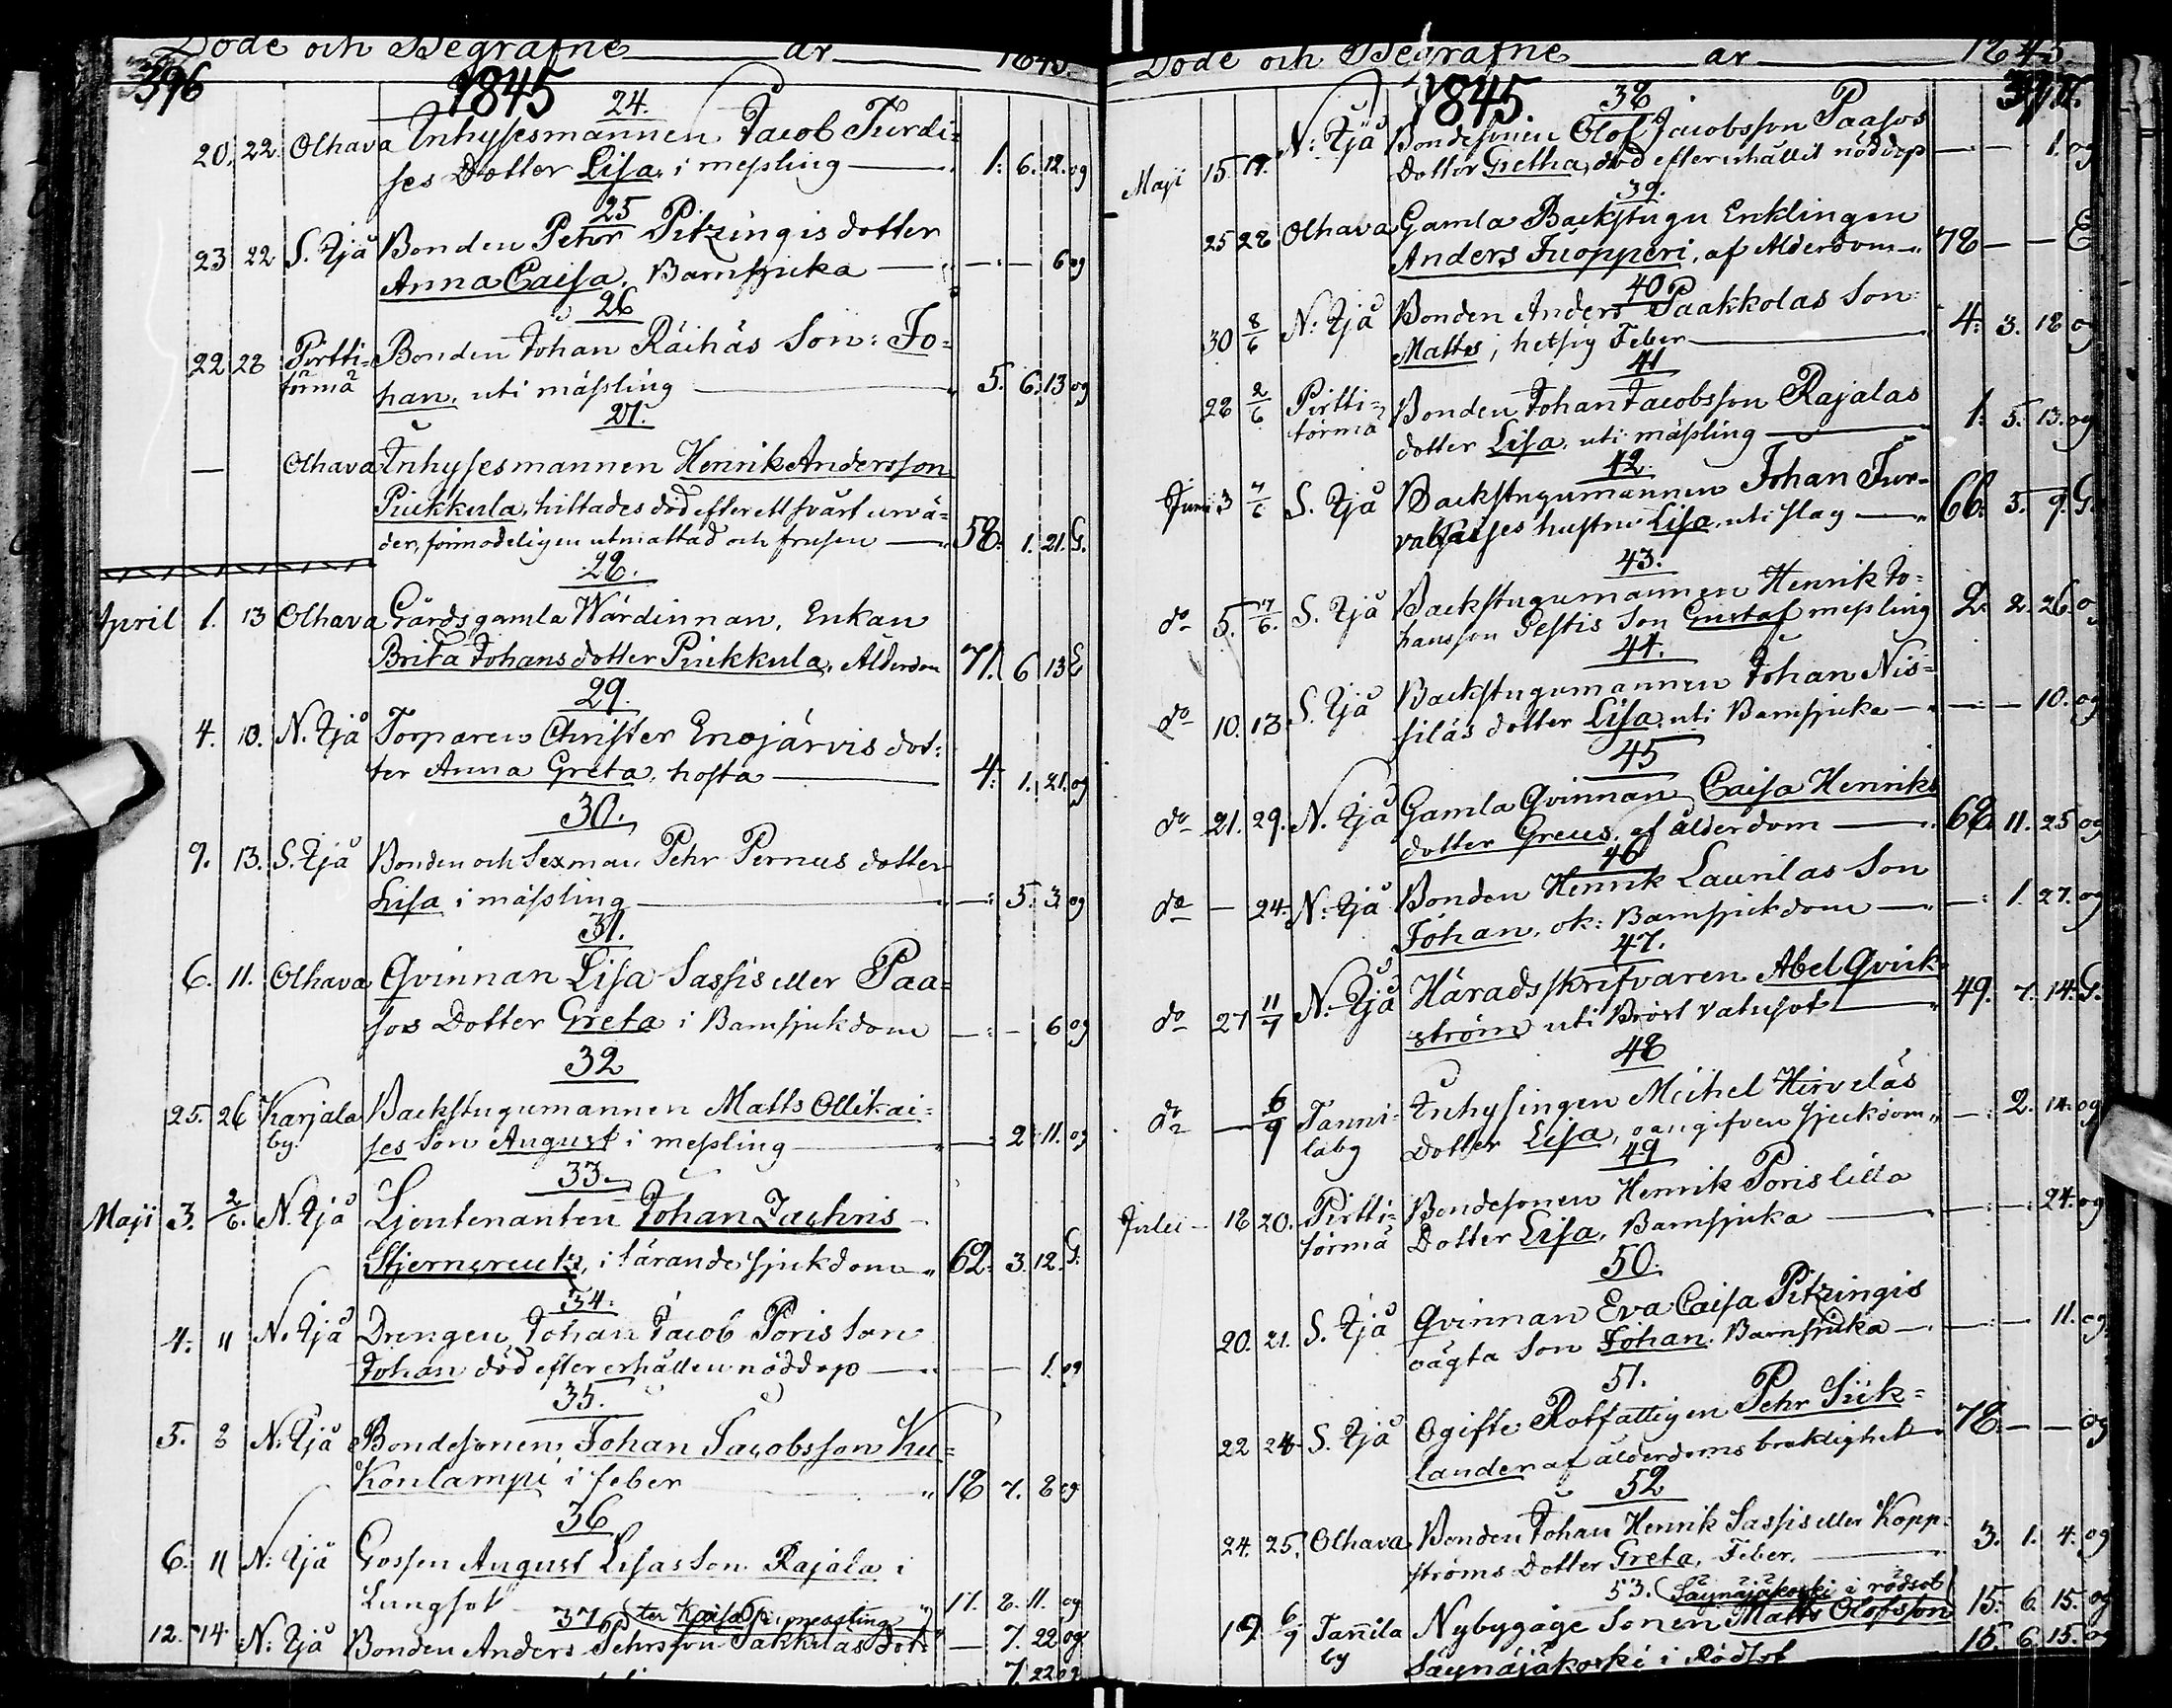 Döde och Begrafne år 1845.
396
1845
24.
20. 22. Olhava Inhysesmannen Jacob Turdi=
ses Dotter Lisa, i messling 1. 6. 12. og
25
23 22 S. Ijå Bonden Petter Pitzingis dotter
Anna Caisa, Barnsjuka — — 6 og
26
22 28 Pirtti= Bonden Johan Räihäs Son: Jo=
törmä han, uti mässling 5. 6. 13 og
27.
— Olhava Inhysesmannen Henrik Andersson
Puikkula, hittades död efter ett svårt urvä=
der, förmodeligen utmattad och frusen 58. 1. 21. G.
28.
April 1. 13 Olhava Gårdsgamla Wärdinnan, Enkan
Brita Johansdotter Puikkula, Ålderdom 71. 6 13 E
29.
4. 13. N. Ijå Torparen Christer Enojärvis dot=
ter Anna Greta, hosta 4. 1. 21. og
30.
9. 13. S. Ijå Bonden och Sexman Pehr Pernus dotter
Lisa i mässling — 5. 3 og
31.
6. 11. Olhava Qvinnan Lisa Sassis eller Paa=
sos Dotter Greta i Barnsjukdom — — 6 og
32
25. 26 Karjala Backstugumannen Matts Ollikai=
by. ses Son August i messling — 2. 11. og
33.
Maji 3. 2/6. N. Ijå Ljeutenanten Johan Zachris
Stjerncreutz, i tärande sjukdom 62. 3. 12. G.
34.
4. 11 N. Ijå Drengen Johan Jacob Poris Son
Johan död efter erhållen nöddop — — 1. og
35.
5. 8 N. Ijå Bondesonen Johan Jacobsson Ku=
konlampi i feber 18 7. 8 og
36
6. 11 N. Ijå Gossen August Lisas Son Rajala i
Lungsot 17. 8. 11. og
37 ter Kaisa i messling
12. 14 N. Ijå Bonden Anders Pehrsson Pakkilas Dot= — 7. 22 og
7. 22 og
Döde och Begrafne år 1845.
1845.
38
Maji 15. 17. N: Ijå Bondesonen Olof Jacobsson Paasos
Dotter Gretha, död efter erhållit nöddop — — 1. og
39.
25 28 Olhava Gamla Backstugu Enklingen
Anders Tuopperi, af Ålderdom 78 — — E
40
30 8/6 N: Ijå Bonden Anders Paakkolas Son
Matts, hetsig Feber 4. 3. 18 og
41
28 2/6 Pirtti= Bonden Johan Jacobsson Rajalas
törmä dotter Lisa, uti mässling 1. 5. 13. og
42.
Juni 3 7/6 S. Ijå Backstugumannen Johan Tur=
vakaises hustru Lisa, uti slag 66. 3. 9. G.
43.
do 5. 7/6. S. Ijå Backstugumannen Henrik Jo=
hansson Pestis Son Gustaf messling 2. 2. 26. og
44.
do 10. 13 S. Ijå Backstugumannen Johan Nis=
siläs dotter Lisa, uti Barnsjuka — — 10. og
45
do 21. 29. N. Ijå Gamla Qvinnan Caisa Henriks
dotter Greus, af ålderdom 68. 11. 25 og
46
do — 24. N: Ijå Bonden Henrik Laurilas Son
Johan, ok: Barnsjukdom — 1. 27. og
47.
do 27 11/7 N: Ijå Häradsskrifvaren Abel Qvick=
ström uti Bröst vatusot 49. 7. 14. G.
48
do — 6/9 Tanni= Inhysingen Michel Hirveläs
laby Dotter Lisa, oangifven sjuckdom — 2. 14. og
49
Julii 18 20. Pirtti= Bondesonen Henrik Poris lilla
törmä Dotter Lisa, Barnsjuka — — 24. og
50.
20. 21. S. Ijå Qvinnan Eva Caisa Pitzingis
oägta Son Johan, Barnsjuka — — 11. og
51.
22 24 S. Ijå Ogifte Rotfattigen Pehr Siik=
lander af ålderdoms bräklighet 78. — — og
52
24. 25. Olhava Bonden Johan Henrik Sassis eller Kopp=
ströms Dotter Greta, Feber. 3. 1. 4. og
53. Säynäjäkoski i rödsot
19. 6/9 Tanila Nybygage Sonen Matts Olofsson 15. 6. 15. og
by Säynäjäkoski i Rödsot 15. 6. 15. og